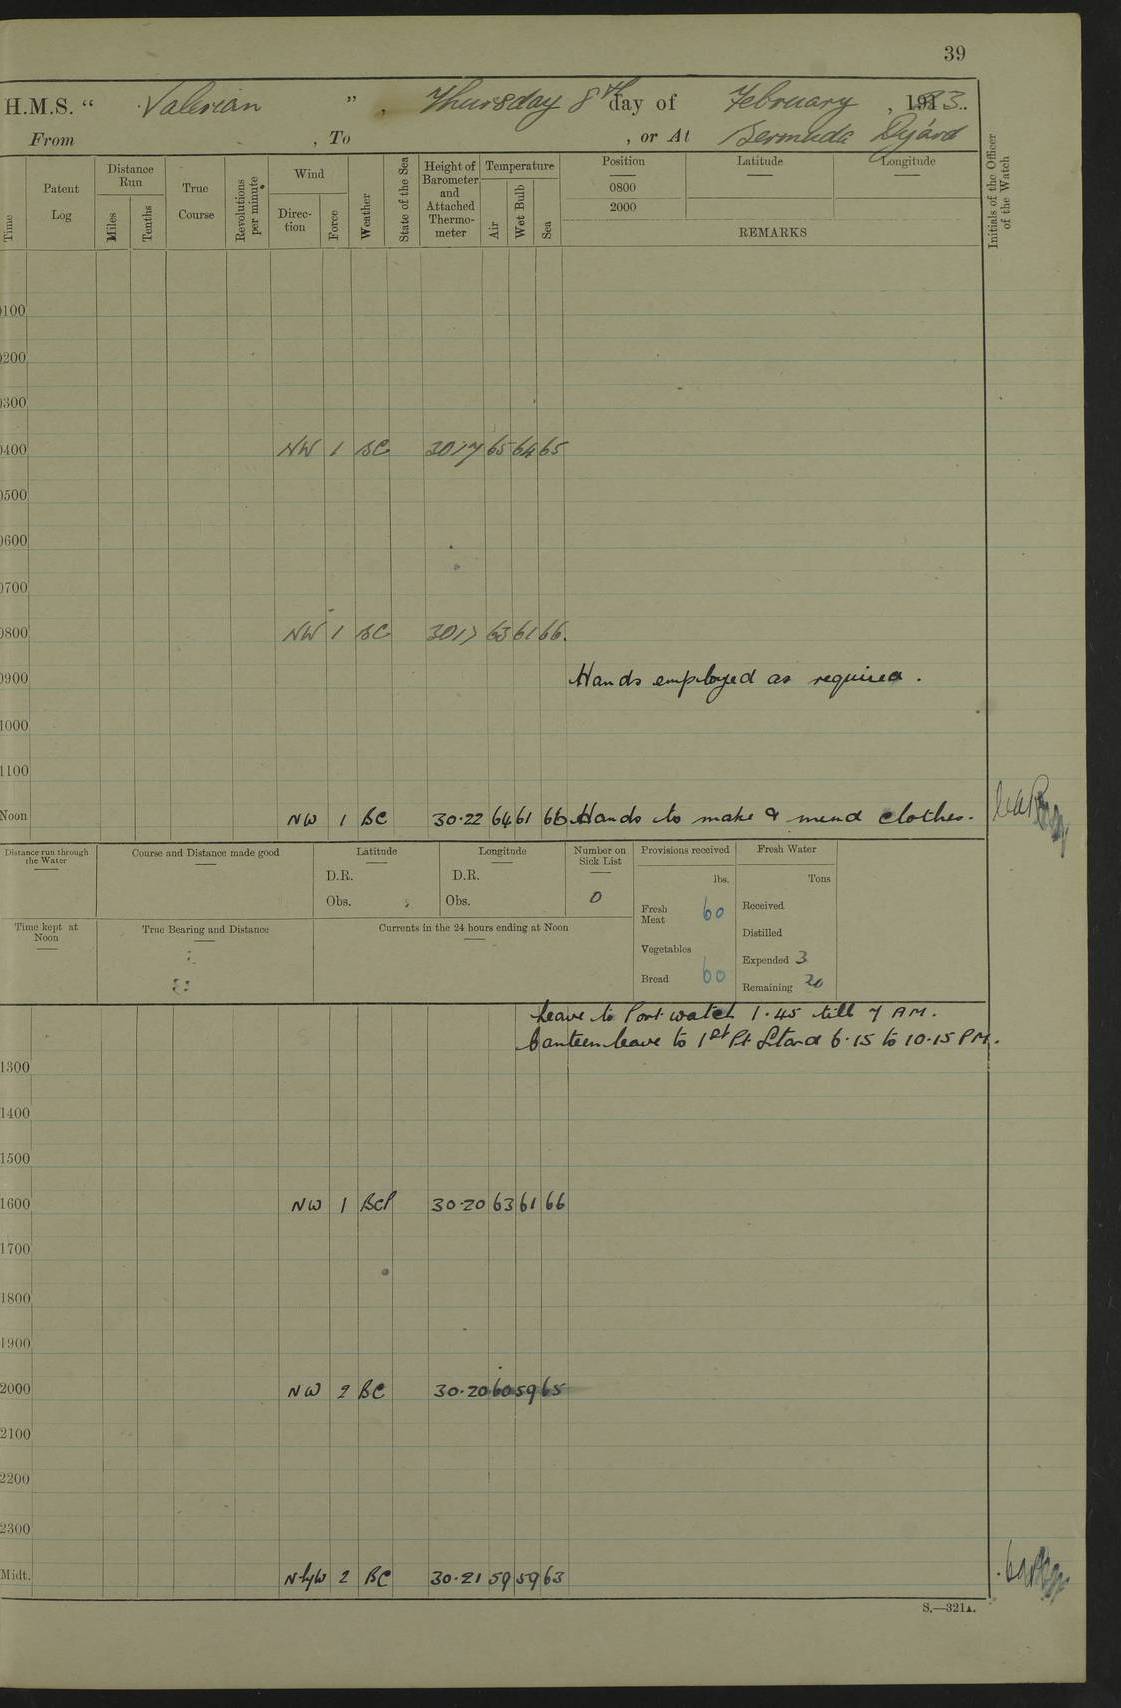 39
H.M.S. “ Valerian ” , Thursday 8th day of February , 1923.
From , To , or At Bermuda Dyard
Time
Patent Log
Distance Run
Miles
Tenths
True Course
Revolutions per minute
Wind
Direc-tion
Force
Weather
State of the Sea
Height of Barometer and Attached Thermo-meter
Temperature
Air
Wet Bulb
Sea
Position
0800
2000
Latitude
Longitude
REMARKS
Initials of the Officer of the Watch
0100
0200
0300
0400 NW 1 BC 3017 65 64 65
0500
0600
0700
0800 NW 1 BC 3017 63 61 66.
0900 Hands employed as required.
1000
1100
Noon NW 1 BC 30·22 64 61 66 Hands to make & mend clothes.
Distance run through the Water
Course and Distance made good
Latitude
D.R.
Obs.
Longitude
D.R.
Obs.
Number on Sick List
0
Provisions received
lbs.
Fresh Meat 60
Vegetables
Bread 60
Fresh Water
Tons
Received
Distilled
Expended 3
Remaining 20
Time kept at Noon
True Bearing and Distance
Currents in the 24 hours ending at Noon
Leave to Port watch 1·45 till 7 AM.
Canteen leave to 1st Pt. Stard 6·15 to 10·15 PM.
1300
1400
1500
1600 NW 1 BCP 30·20 63 61 66
1700
1800
1900
2000 NW 2 BC 30·20 60 59 65
2100
2200
2300
Midt. N by W 2 BC 30·21 59 59 63
S.—321A.